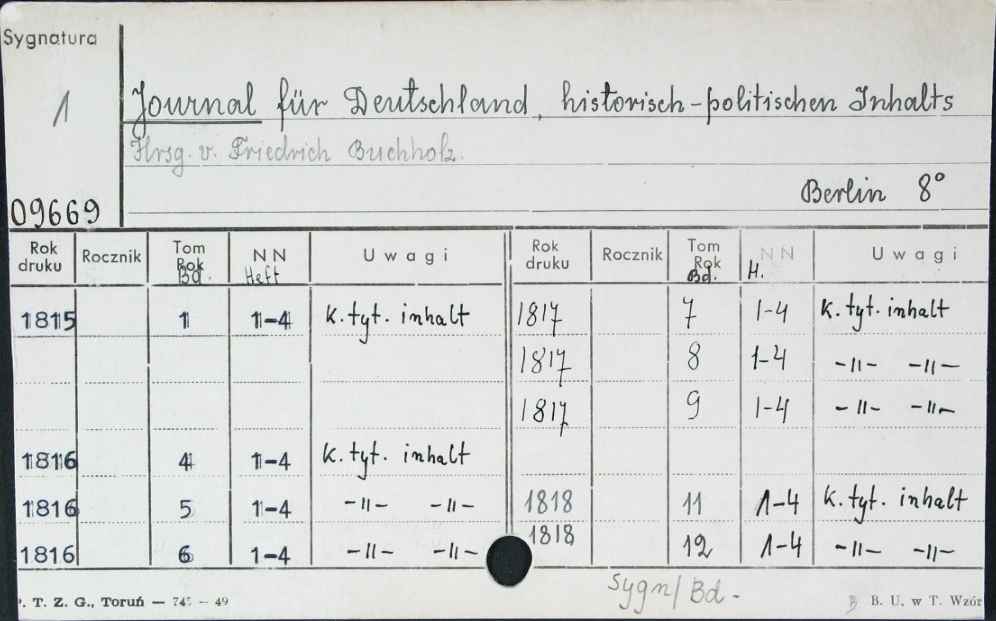 Sygnatura
1 Journal für Deutschland, historisch-politischen Inhalts
Hrsg. v. Friedrich Buchholz.
Berlin 8°
09669
Rok druku Rocznik Tom Rok Bd. NN Heft Uwagi Rok druku Rocznik Tom Rok Bd. NN H. Uwagi
1815 1 1-4 K. tyt. inhalt 1817 7 1-4 K. tyt. inhalt
1817 8 1-4 -11- -11-
1817 9 1-4 -11- -11-
1816 4 1-4 K. tyt. inhalt
1816 5 1-4 -11- -11- 1818 11 1-4 K. tyt. inhalt
1816 6 1-4 -11- -11- 1818 12 1-4 -11- -11-
Sygn/Bd.-
T. Z. G., Toruń — 49 B. U. w T. Wzór